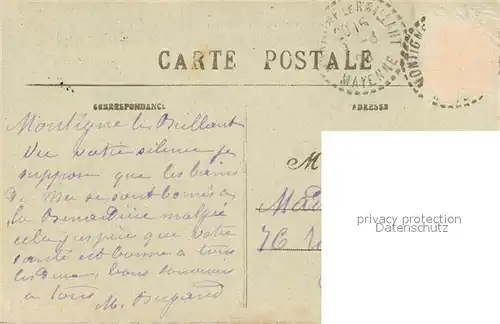 MONTIGNÉ LE BRILLANT
20 15
MAYENNE
MONTIGNÉ
CARTE POSTALE
CORRESPONDANCE
ADRESSE
Montigné le Brillant
Vu votre silence je
suppose que les bains
de mer se sont bornés à
la
cela j'espère que votre
santé est bonne à tous
les deux, bons souvenirs
à tous
M.
M
Mad
76
privacy protection
Datenschutz